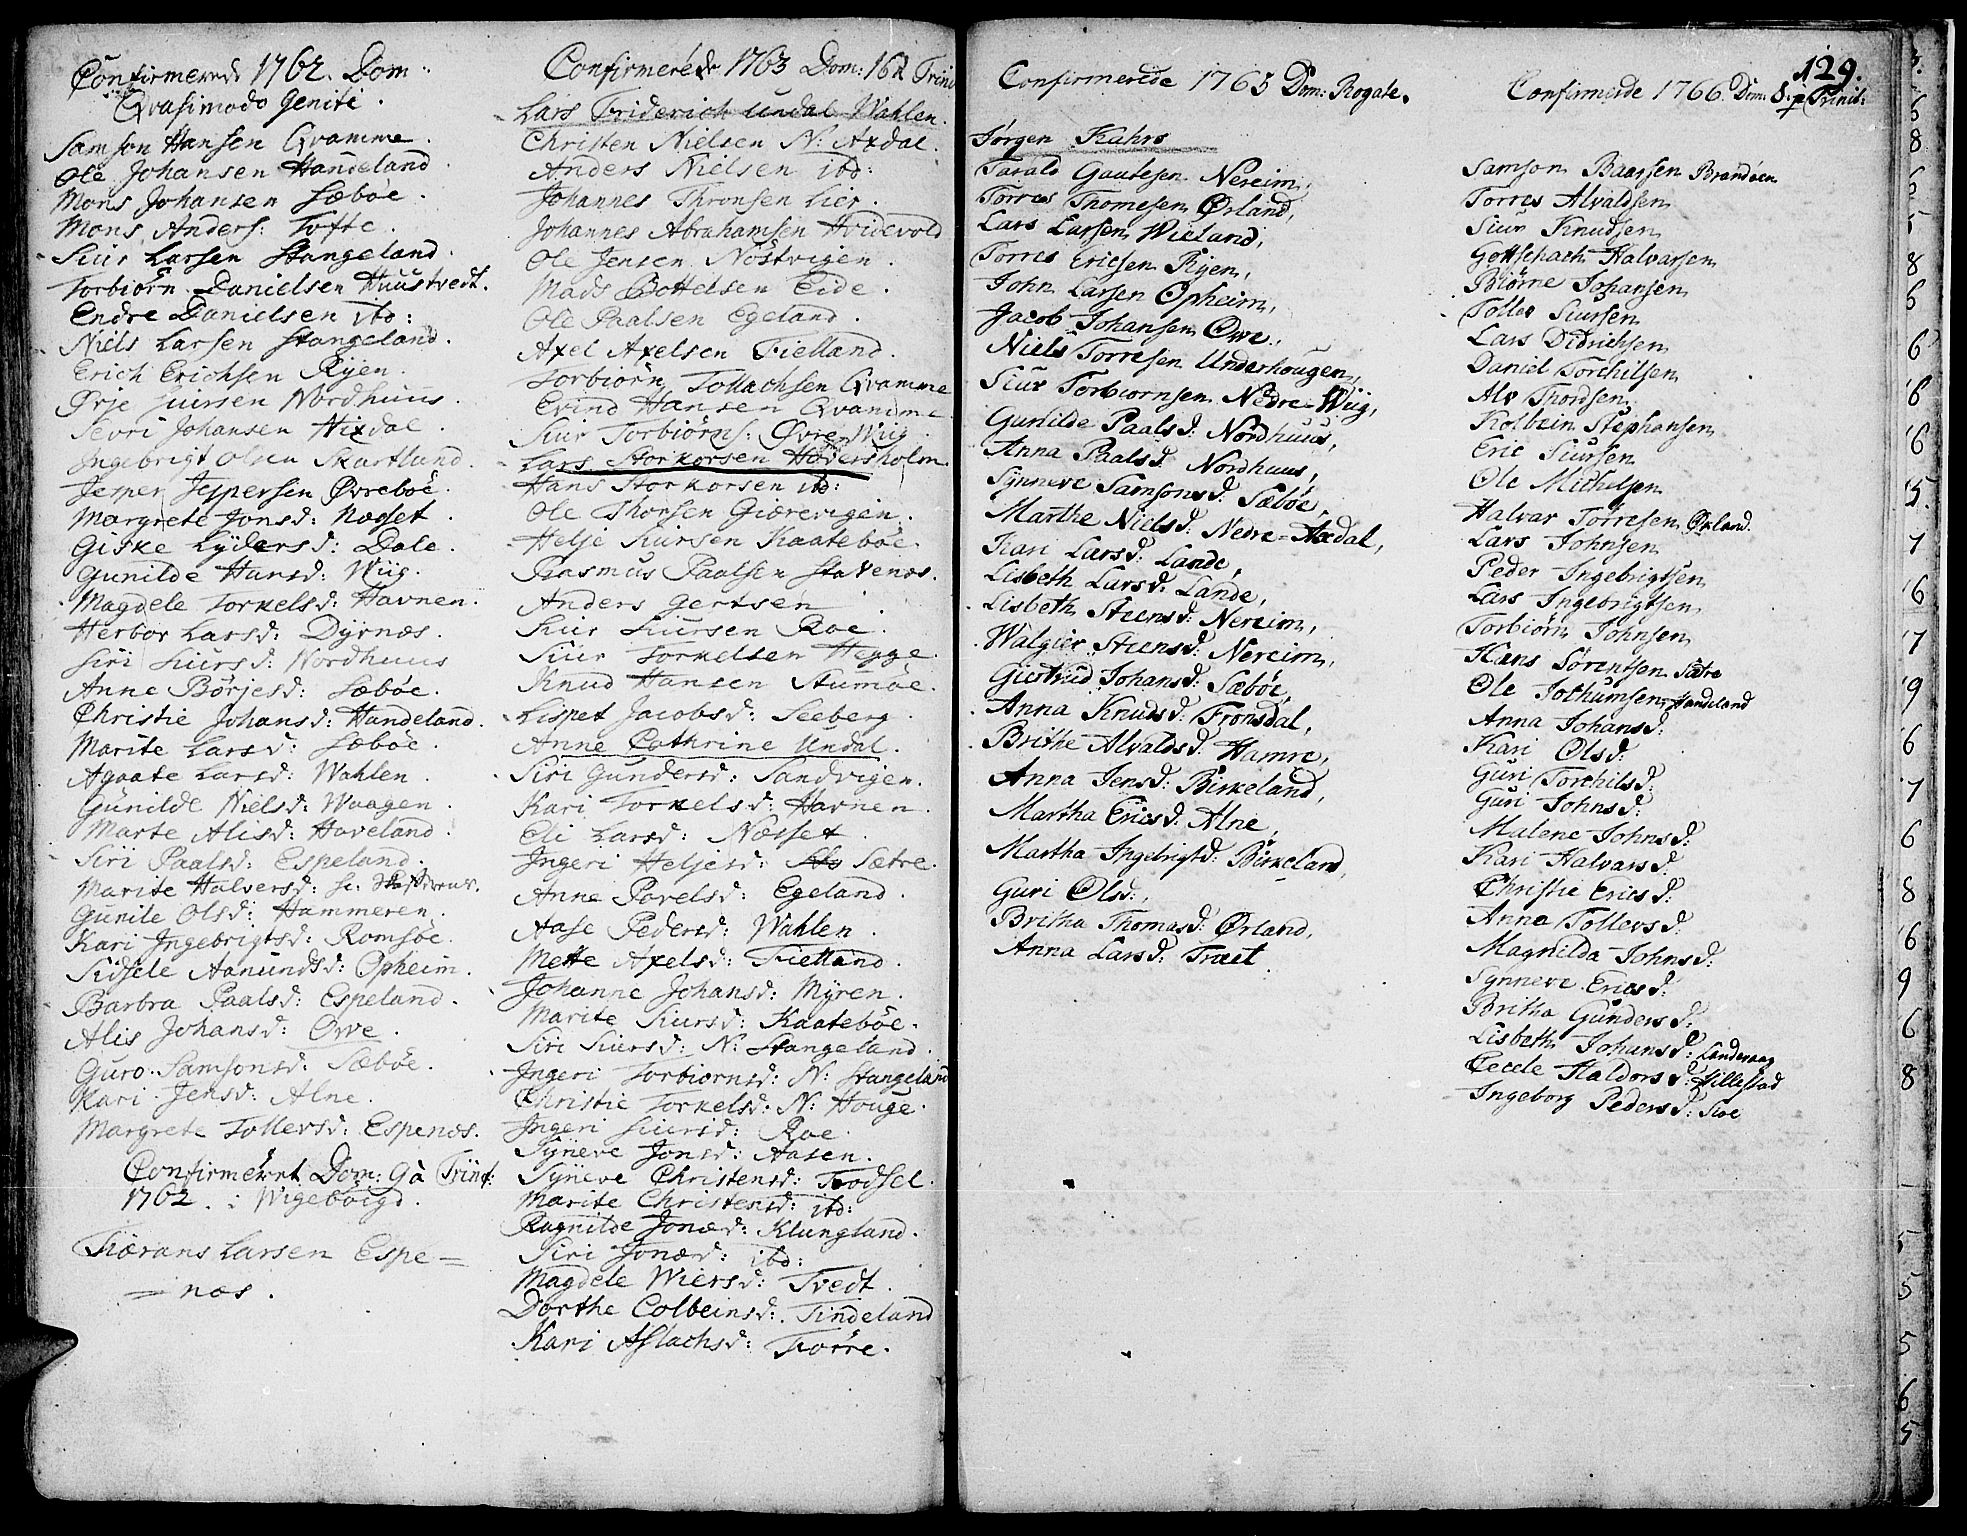 Confirmerede 1762. Dom:
Qvasimodo Geniti.
Samson Hansen Qvamme.
Ole Johansen Handeland
Mons Johansen Sæbøe.
Mons Anders: Tofte.
Siur Larsen Stangeland.
Torbiörn Danielsen Huustvedt.
Endre Danielsen ibd:
Niels Larsen Stangeland.
Erich Erichsen Ryen.
Ørje Siursen Nordhuus.
Sevri Johansen Hixdal.
Ingebrigt Olsen Skartland.
Jesper Jespersen Øvrebøe.
Margrete Jonsd: Næsset.
Giske Lyders d: Dale.
Gunilde Hansd: Wiig.
Magdele Torkelsd: Havnen.
Herbor Larsd: Dyrnæs.
Siri Siursd: Nordhuus
Anne Börjesd: Sæbøe.
Christie Johansd: Handeland.
Marite Larsd: Sæbøe.
Agaate Larsd: Wahlen.
Gunilde Nielsd: Waagen.
Marte Alisd: Haveland.
Siri Paalsd: Espeland.
Marite Halversd:
Gunile Olsd: Hammeren.
Kari Ingebrigtsd: Romsøe.
Sidsele Aamundsd: Opheim.
Barbra Paalsd: Espeland.
Alis Johansd: Owe.
Guro Samsonsd: Sæbøe.
Kari Jensd: Alne.
Margrete Tollevsd: Espenæs.
Confirmeret Dom: 9 à Trinit:
1762. i Wigebøigd.
Tiærans Larsen Espe=
=næs.
Confirmerede 1763 Dom: 16 à Trinit
Lars Friderich Undal Wahlen.
Christen Nielsen N: Axdal.
Anders Nielsen ibd:
Johannes Thronsen Lier.
Johannes Abrahamsen Hvidevold
Ole Jensen Nöstvigen.
Mads Bottelsen Eide.
Ole Paalsen Egeland.
Axel Axelsen Fielland.
Torbiörn Tollachsen Qvamme
Evind Hansen Qvamme
Siur Torbiörns: Øvre Wiig
Lars Storkorsen Hoversholm.
Hans Storkorsen ibd:
Ole Thorsen Giærevigen.
Helje Siursen Kaatebøe.
Rasmus Paalsen Stavenæs.
Anders Gertsen
Siur Siursen Roe.
Siur Torkelsen Hegge.
Knud Hansen Stumøe.
Lispet Jacobsd: Seeberg.
Anne Cathrine Undal.
Siri Gundersd: Sandvigen.
Kari Torkelsd: Havnen.
Eli Larsd: Næsset.
Ingeri Heljesd: Sætre.
Anne Povelsd: Egeland.
Aase Pedersd: Wahlen.
Mette Axelsd: Fielland.
Johanne Johansd: Myren.
Marite Siursd: Kaatebøe.
Siri Siursd: N: Stangeland.
Ingeri Torbiornsd: N: Stangeland
Christie Torkelsd: N: Houge.
Ingeri Siursd: Roe.
Syneve Jonsd: Aasen.
Syneve Christensd: Trodsel.
Marite Christensd: ibd:
Ragnilde Jonæd: Klungland.
Siri Jonæd: ibd:
Magdele Wiersd: Tvedt.
Dorthe Colbeinsd: Tindeland
Kari Aslachsd: Tiörre.
Confirmerede 1765 Dom: Rogate.
Jørgen Kahrs
Tarald Gautesen Nereim,
Torres Thomesen Ørland,
Lars Larsen Wieland,
Torres Ericsen Ryen,
John Larsen Opheim,
Jacob Johansen Owe,
Niels Torresen Underhougen,
Siur Torbiornsen Nedre-Wiig,
Gunilde Paalsd: Nordhuus,
Anna Paalsd: Nordhuus,
Synneve Samsonsd: Sæbøe,
Marthe Nielsd: Nedre-Axdal,
Kari Larsd: Lande,
Lisbeth Larsd: Lande,
Lisbeth Steensd: Nereim,
Walgier Steensd: Nereim,
Giertrud Johansd: Sæbøe,
Anna Knudsd: Fronsdal,
Brithe Alvaldsd: Hamre,
Anna Jensd: Birkeland,
Martha Ericsd: Alne,
Martha Ingebrigtsd: Birkeland,
Guri Olsd:,
Britha Thomasd: Ørland,
Anna Larsd: Træet
129.
Confirmerde 1766 Dom: 8. p Trinit:
Samson Baarsen Brandøen
Torres Alvaldsen
Siur Knudsen
Gottschach Halvarsen
Biörne Johansen
Tollev Siursen
Lars Didrichsen
Daniel Torchilsen
Alv Thordsen
Kolbein Stephansen
Eric Siursen
Ole Michelsen
Halvar Torresen Ørland
Lars Johnsen
Peder Ingebrigtsen
Lars Ingebrigtsen
Torbiörn Johnsen
Hans Sørentsen Sætre
Ole Jothumsen Handeland
Anna Johansd:
Kari Olsd:
Guri Torchilsd:
Guri Johnsd:
Malene Johnsd:
Kari Halvarsd:
Christie Ericsd:
Anna Tollevsd:
Magnilda Johnsd:
Synneve Ericsd:
Britha Gundersd:
Lisbeth Johansd: Landevaag
Cecele Haldorsd: Hillestad
Ingeborg Pedersd: Sioe